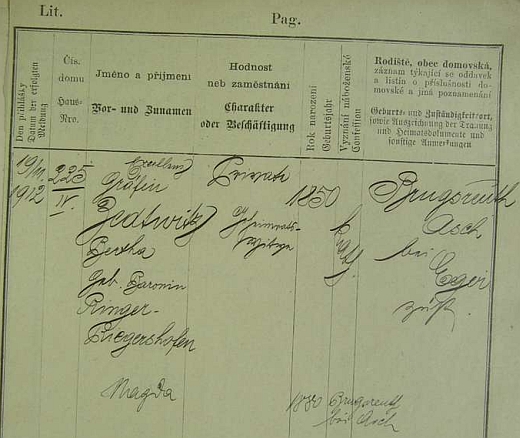 Lit.
Pag.
Den přihlášky
Datum der erfolgten
Meldung
Čís.
domu
Haus-
Nro.
Jméno a příjmení
Vor- und Zunamen
Hodnost
neb zaměstnání
Charakter
oder Beschäftigung
Rok narození
Geburtsjahr
Vyznání náboženské
Confession
Rodiště, obec domovská,
záznam týkající se oddavek
a listin o příslušnosti do-
movské a jiná poznamenání
Geburts- und Zuständigkeitsort,
sowie Aufzeichnung der Trauung
und Heimatsdokumente und
sonstige Anmerkungen
1912
225
IV.
Excellenz
Gräfin
Zedtwitz
Bertha
geb. Baronin
Ringer-
Private
Geheimrats-
Witwe
1850
Asch,
bei
Eger
zust.
Magda
1880
bei Asch